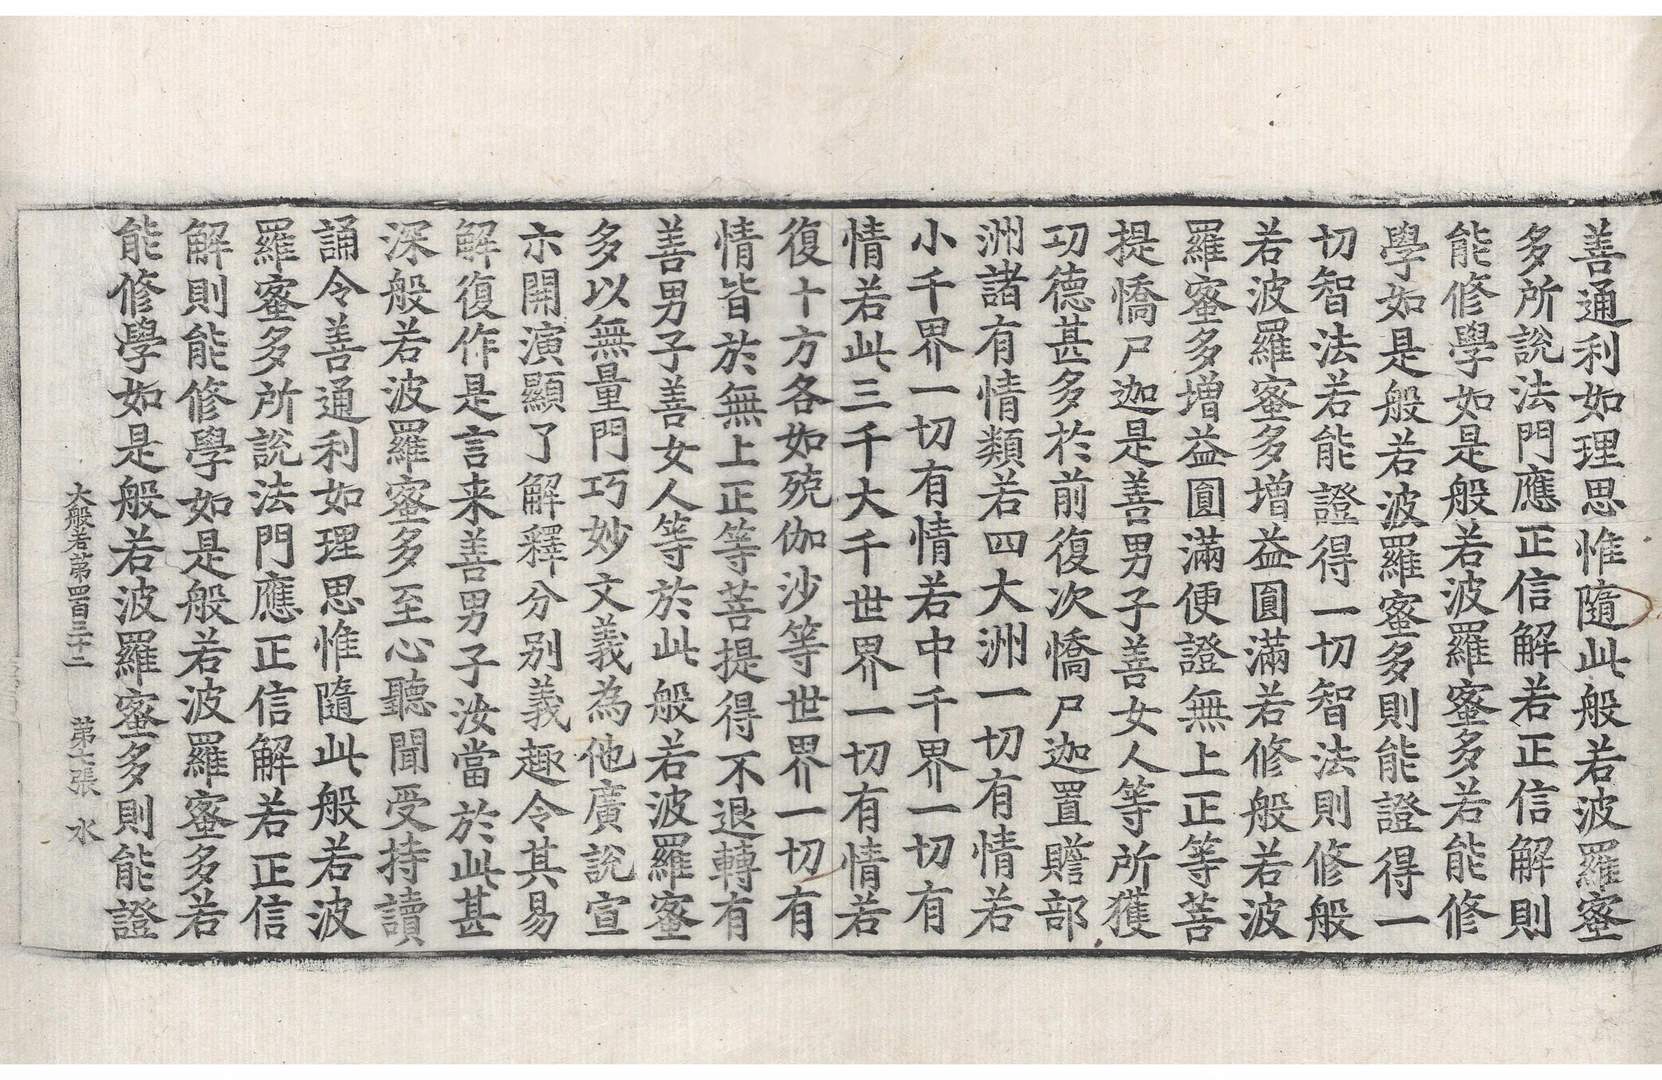 善通利如理思惟隨此般若波羅蜜
多所說法門應正信解若正信解則
能修學如是般若波羅蜜多若能修
學如是般若波羅蜜多則能證得一
切智法若能證得一切智法則修般
若波羅蜜多增益圓滿若修般若波
羅蜜多增益圓滿便證無上正等菩
提憍尸迦是善男子善女人等所獲
功德甚多於前復次憍尸迦置贍部
洲諸有情類若四大洲一切有情若
小千界一切有情若中千界一切有
情若此三千大千世界一切有情若
復十方各如殑伽沙等世界一切有
情皆於無上正等菩提得不退轉有
善男子善女人等於此般若波羅蜜
多以無量門巧妙文義為他廣說宣
示開演顯了解釋分別義趣令其易
解復作是言来善男子汝當於此甚
深般若波羅蜜多至心聽聞受持讀
誦令善通利如理思惟隨此般若波
羅蜜多所說法門應正信解若正信
解則能修學如是般若波羅蜜多若
能修學如是般若波羅蜜多則能證
大般若第四百三十二 第七張 水